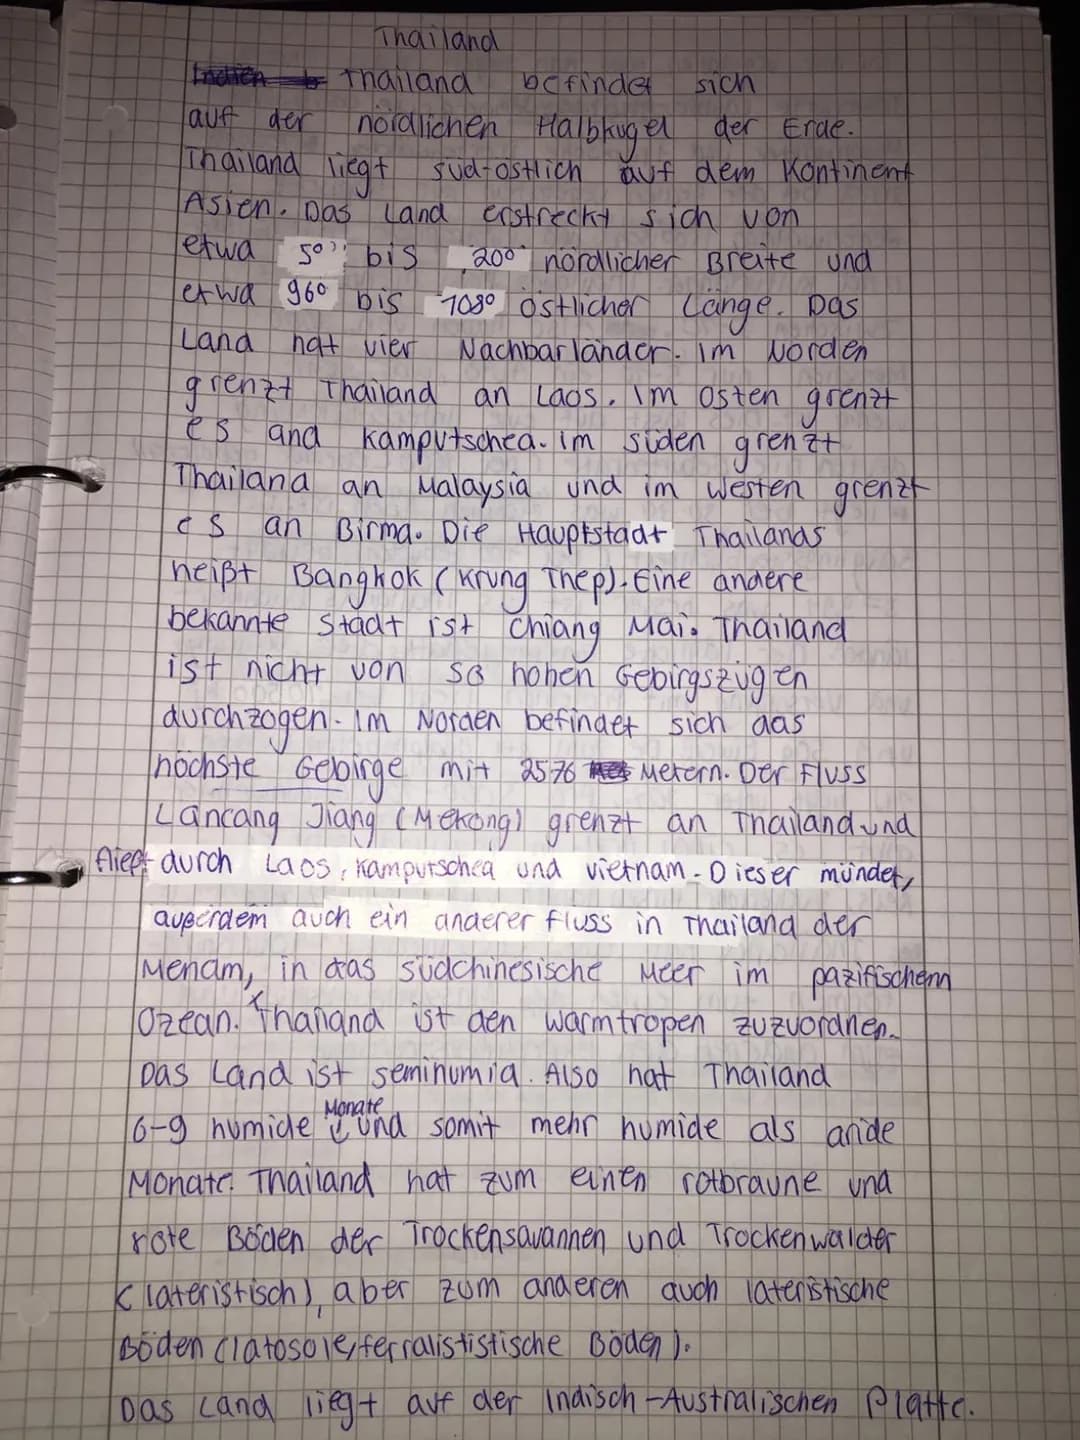 Thailand
Thailand befindet sich
auf der nördlichen Halbkugel der Erde.
Thailand liegt süd-östlich auf dem Kontinent
Asien. Das Land erstreckt sich von
etwa 5° bis 20° nördlicher Breite und
etwa 96° bis 108° östlicher Länge. Das
Land hat vier Nachbarländer. Im Norden
grenzt Thailand an Laos. Im Osten grenzt
es and Kamputschea. im Süden grenzt
Thailand an Malaysia und im Westen grenzt
es an Birma. Die Hauptstadt Thailands
heißt Bangkok (Krung Thep). Eine andere
bekannte Stadt ist Chiang Mai. Thailand
ist nicht von so hohen Gebirgszügen
durchzogen. Im Norden befindet sich das
höchste Gebirge mit 2576 Metern. Der Fluss
Lancang Jiang (Mekong) grenzt an Thailand und
fließt durch Laos, Kamputschea und Vietnam. Dieser mündet,
außerdem auch ein anderer Fluss in Thailand der
Menam, in das südchinesische Meer im pazifischem
Ozean. Thailand ist den Warmtropen zuzuordnen.
Das Land ist semihumid. Also hat Thailand
6-9 humide Monate und somit mehr humide als aride
Monate. Thailand hat zum einen rotbraune und
rote Böden der Trockensavannen und Trockenwälder
(lateristisch), aber zum anderen auch lateristische
Böden (latosole, ferralististische Böden).
Das Land liegt auf der Indisch-Australischen Platte.